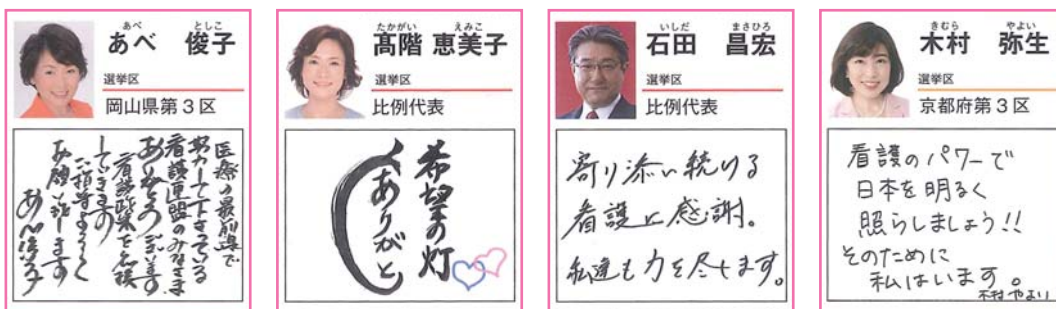 あべ としこ
あべ 俊子
選挙区
岡山県第3区
医療の最前線で
努力して下さっている
看護連盟のみなさま
ありがとうございます。
看護政策を
していきます
ご指導よろしく
お願い致します
あべ俊子
たかがい えみこ
髙階 恵美子
選挙区
比例代表
希望の灯
ありがとう
いしだ まさひろ
石田 昌宏
選挙区
比例代表
寄り添い続ける
看護に感謝。
私達も力を尽します。
きむら やよい
木村 弥生
選挙区
京都府第3区
看護のパワーで
日本を明るく
照らしましょう!!
そのために
私はいます。
木村やよい